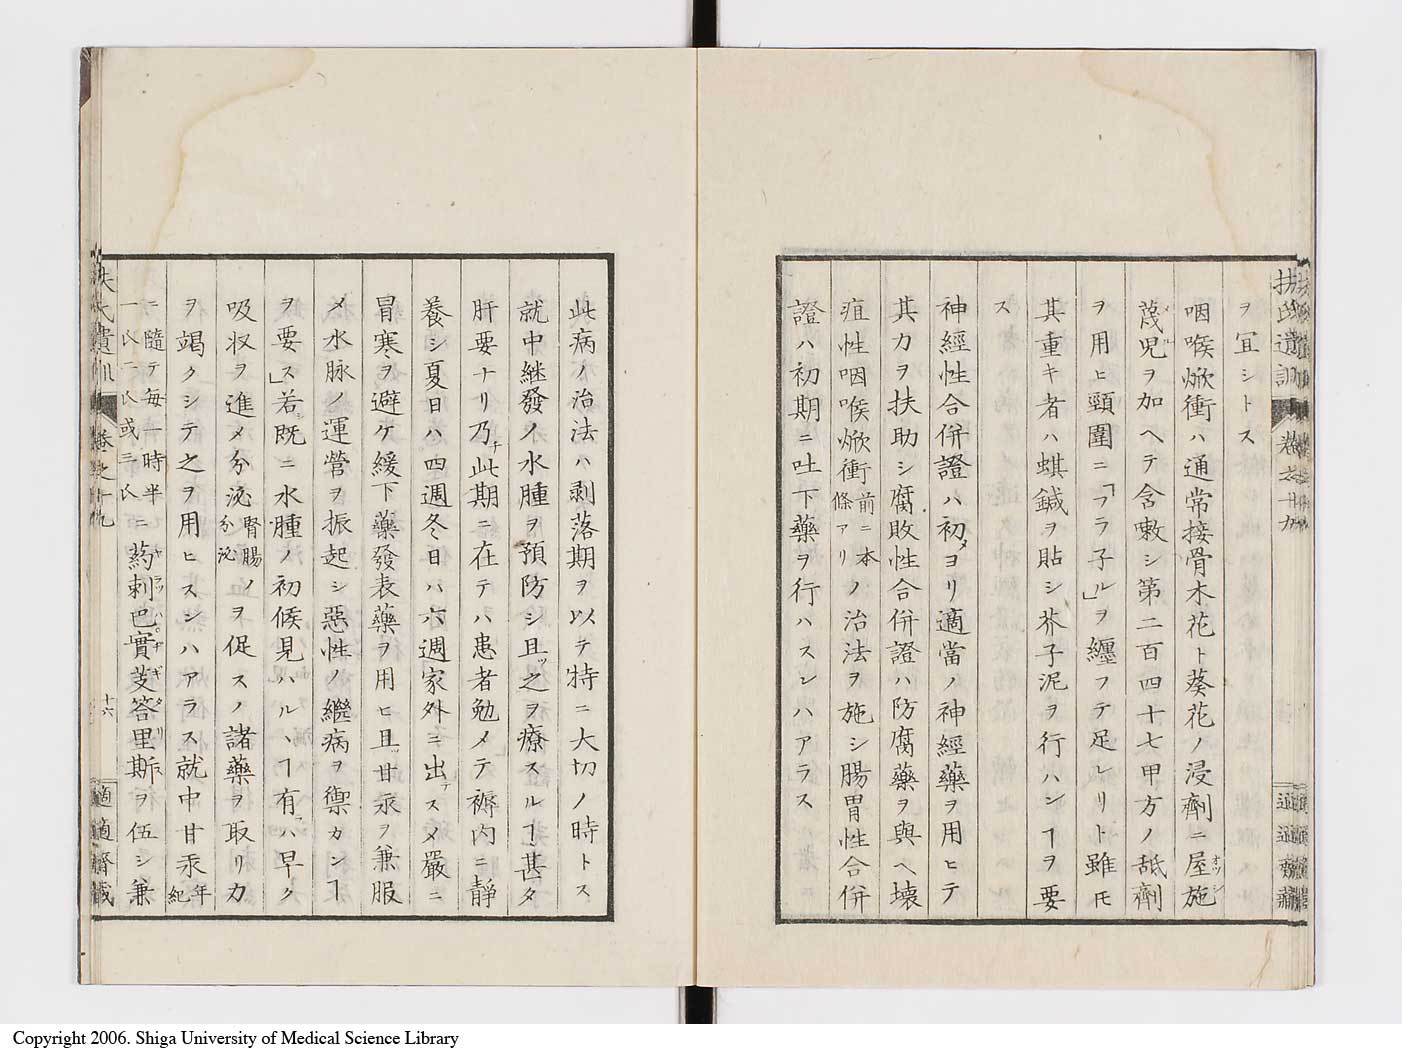 扶氏遺訓 卷之十九
ヲ冝シトス
咽喉焮衝ハ通常接骨木花ト葵花ノ浸劑ニ屋施
蔑児ヲ加ヘテ含嗽シ第二百四十七甲方ノ舐劑
ヲ用ヒ頸圍ニ「フラ子ル」ヲ纏フテ足レリト雖モ
其重キ者ハ蜞鍼ヲ貼シ芥子泥ヲ行ハンヿヲ要
ス
神經性合併證ハ初メヨリ適當ノ神經藥ヲ用ヒテ
其力ヲ扶助シ腐敗性合併證ハ防腐藥ヲ與ヘ壊
疽性咽喉焮衝前ニ本條アリノ治法ヲ施シ腸胃性合併
證ハ初期ニ吐下藥ヲ行ハスンハアラス
此病ノ治法ハ剥落期ヲ以テ特ニ大切ノ時トス
就中継發ノ水腫ヲ預防シ且ツ之ヲ療スルヿ甚タ
肝要ナリ乃チ此期ニ在テハ患者勉メテ褥内ニ靜
養シ夏日ハ四週冬日ハ六週家外ニ出テスメ嚴ニ
冒寒ヲ避ケ緩下藥發表藥ヲ用ヒ且甘汞ヲ兼服
メ水脉ノ運營ヲ振起シ惡性ノ繼病ヲ禦カンヿ
ヲ要ス」若シ既ニ水腫ノ初候見ハルヽヿ有ラハ早ク
吸収ヲ進メ分泌腎腸ノ分泌ヲ促スノ諸藥ヲ取リ力
ヲ竭クシテ之ヲ用ヒスンハアラス就中甘汞年紀
ニ隨テ毎一時半ニ一氏二氏或三氏ニ葯剌巴實芰答里斯ヲ伍シ兼
扶氏遺訓 卷之十九 十六 適適齋藏
Copyright 2006. Shiga University of Medical Science Library